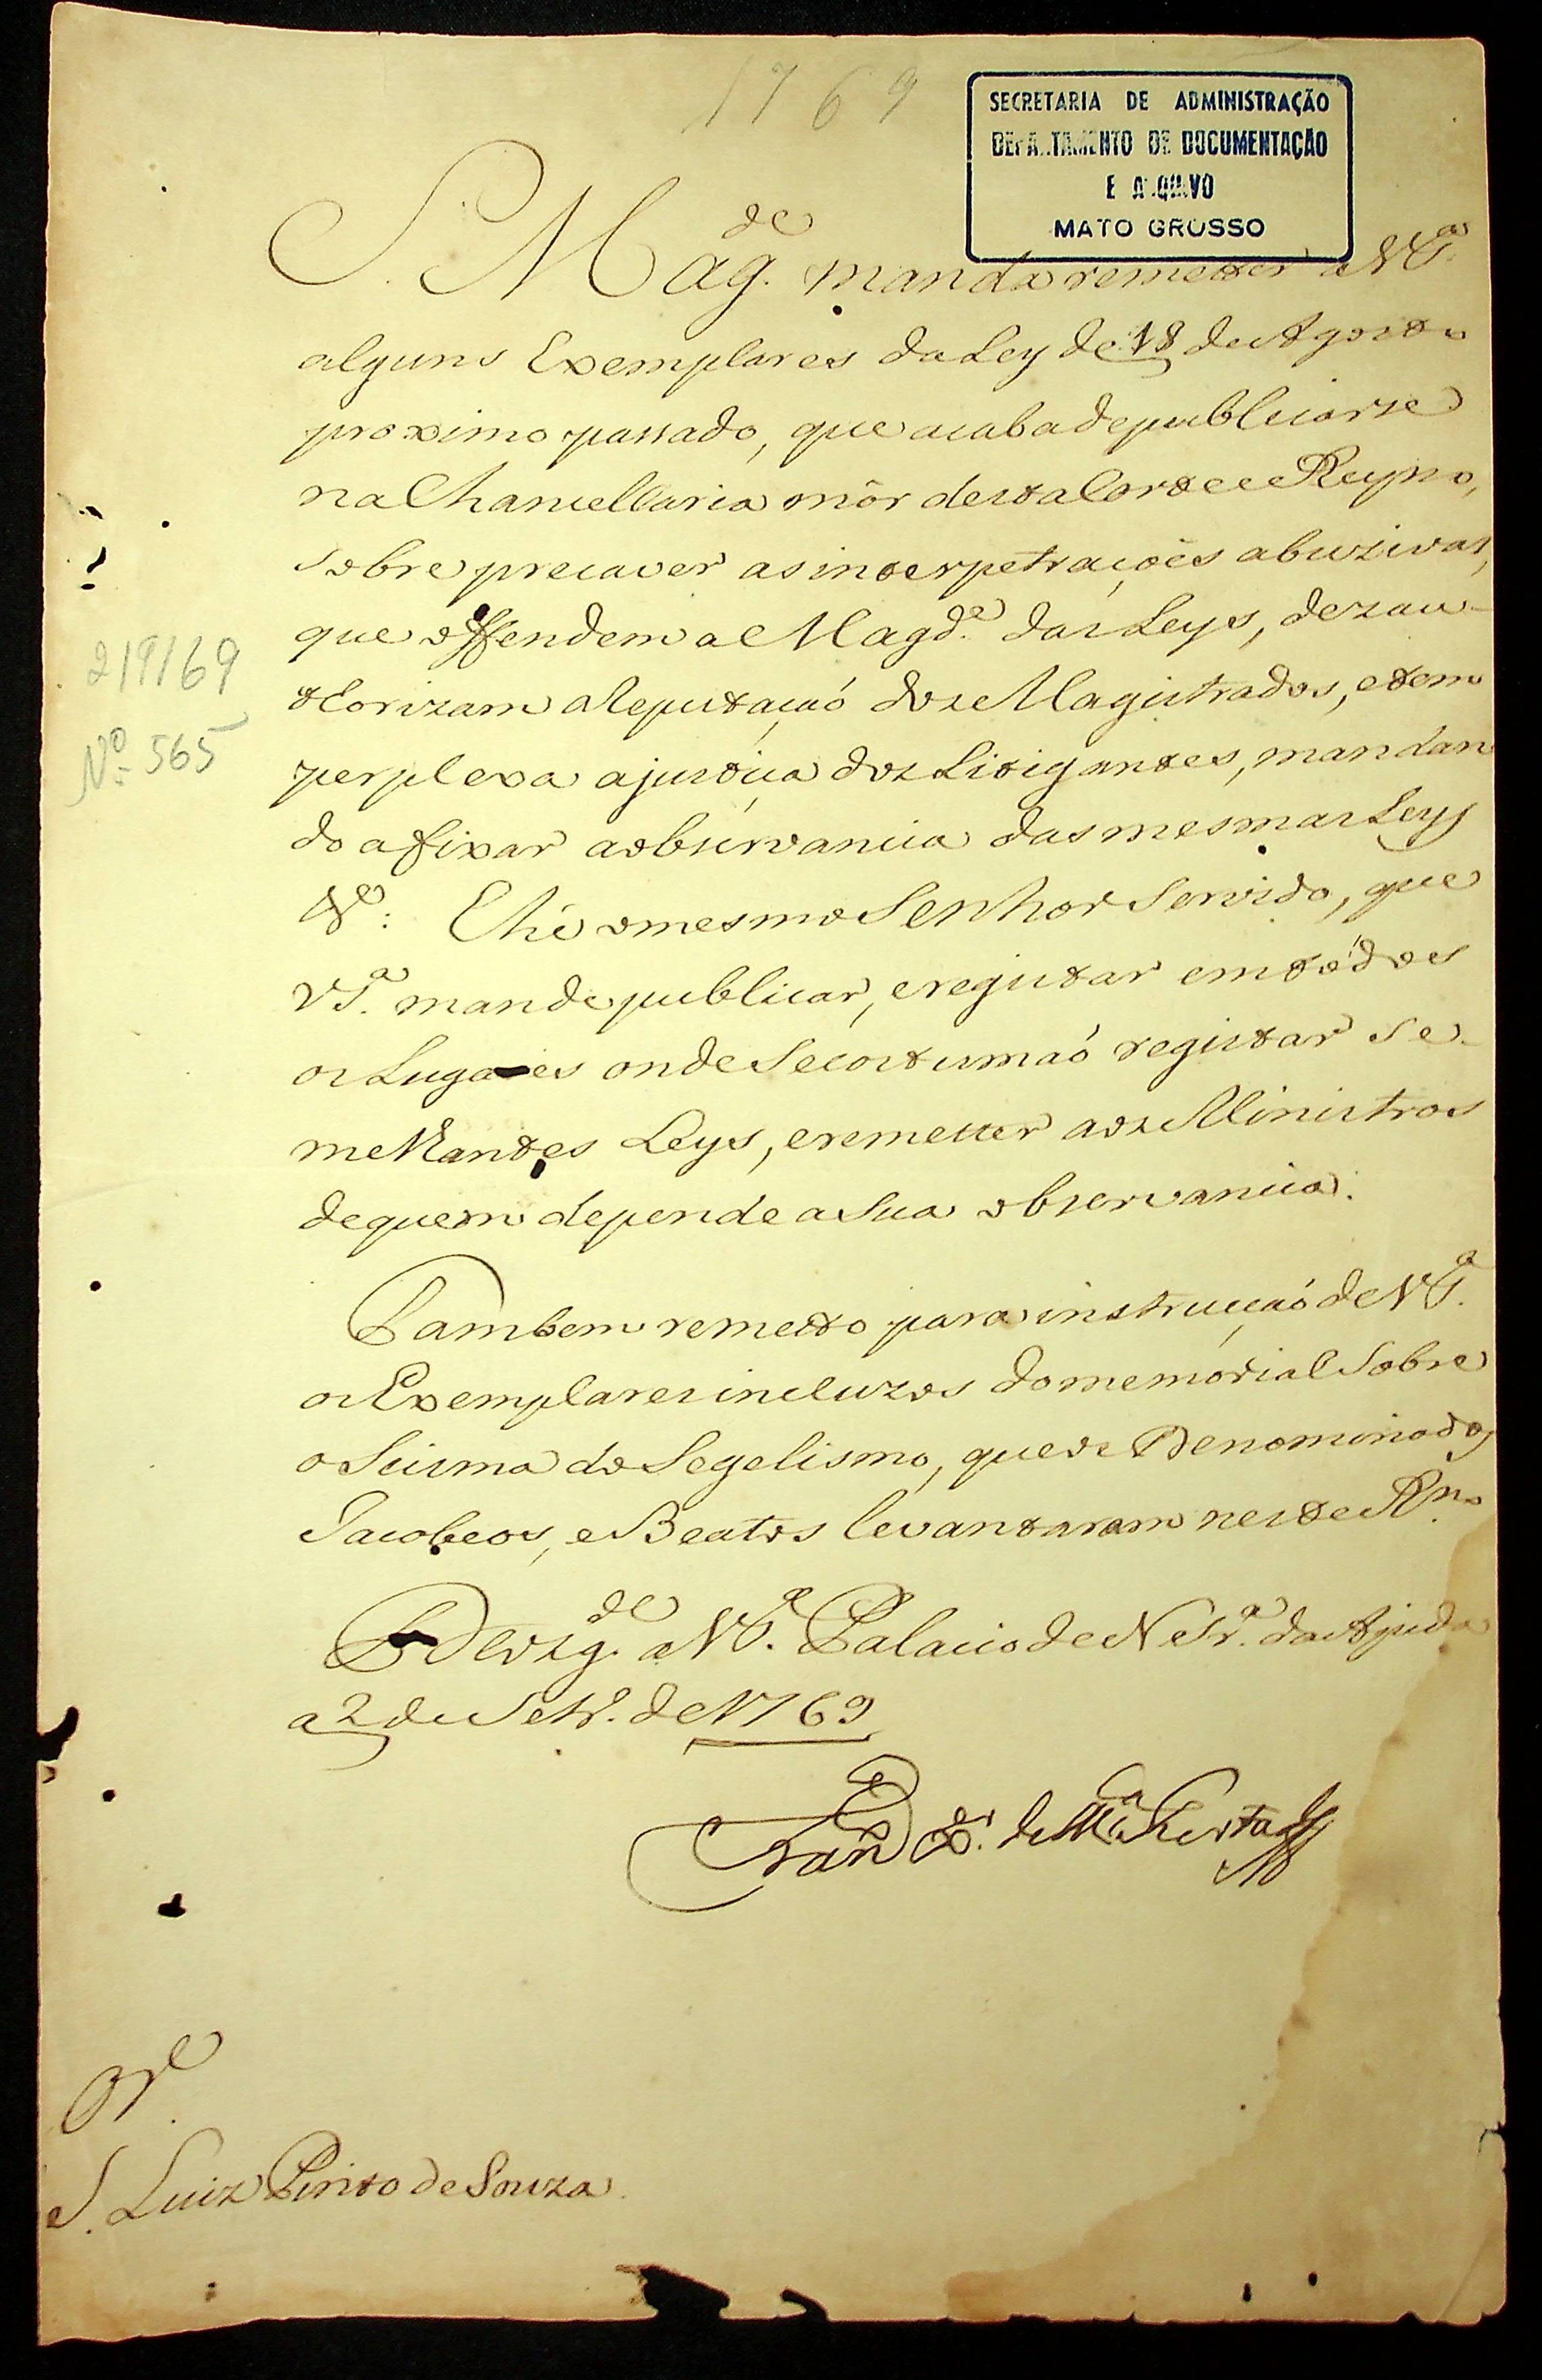 1769
SECRETARIA DE ADMINISTRAÇÃO
DEPARTAMENTO DE DOCUMENTAÇÃO
E ARQUIVO
MATO GROSSO
S. Mag.de manda remetter a V S.a
alguns Exemplares da Ley de 18 de Agosto
proximo passado, que acaba de publicarse
na Chancellaria mór desta Corte e Reyno,
sobre precaver as interpetraçoẽs abuzivas,
que offendem a Magd.e das Leys, dezau-
thorizam a Reputaçaó dos Magistrados, e tem
perplexa a justiça dos Litigantes, mandan
do afixar a observancia das mesmas Leys
&.a: E hé o mesmo Senhor Servido, que
V S.a mande publicar, e registar em tódos
os Lugares onde Se costumaó registar se-
melhantes Leys, e remetter aos Ministros
de quem depende a Sua observancia.
Tambem remetto para instrucçaó de V S.a
os Exemplares incluzos do memorial Sobre
o Scisma do Segelismo, que os Denominados
Jacobeos, e Beatos levantaram neste R.no
D.s g.de a V S.a Palacio de N Sr.a da Ajuda
a 2 de Setr.o de 1769
Fran.co X.er de M.ça Furtado
2/9/69
Nº 565
S.r Luiz Pinto de Souza